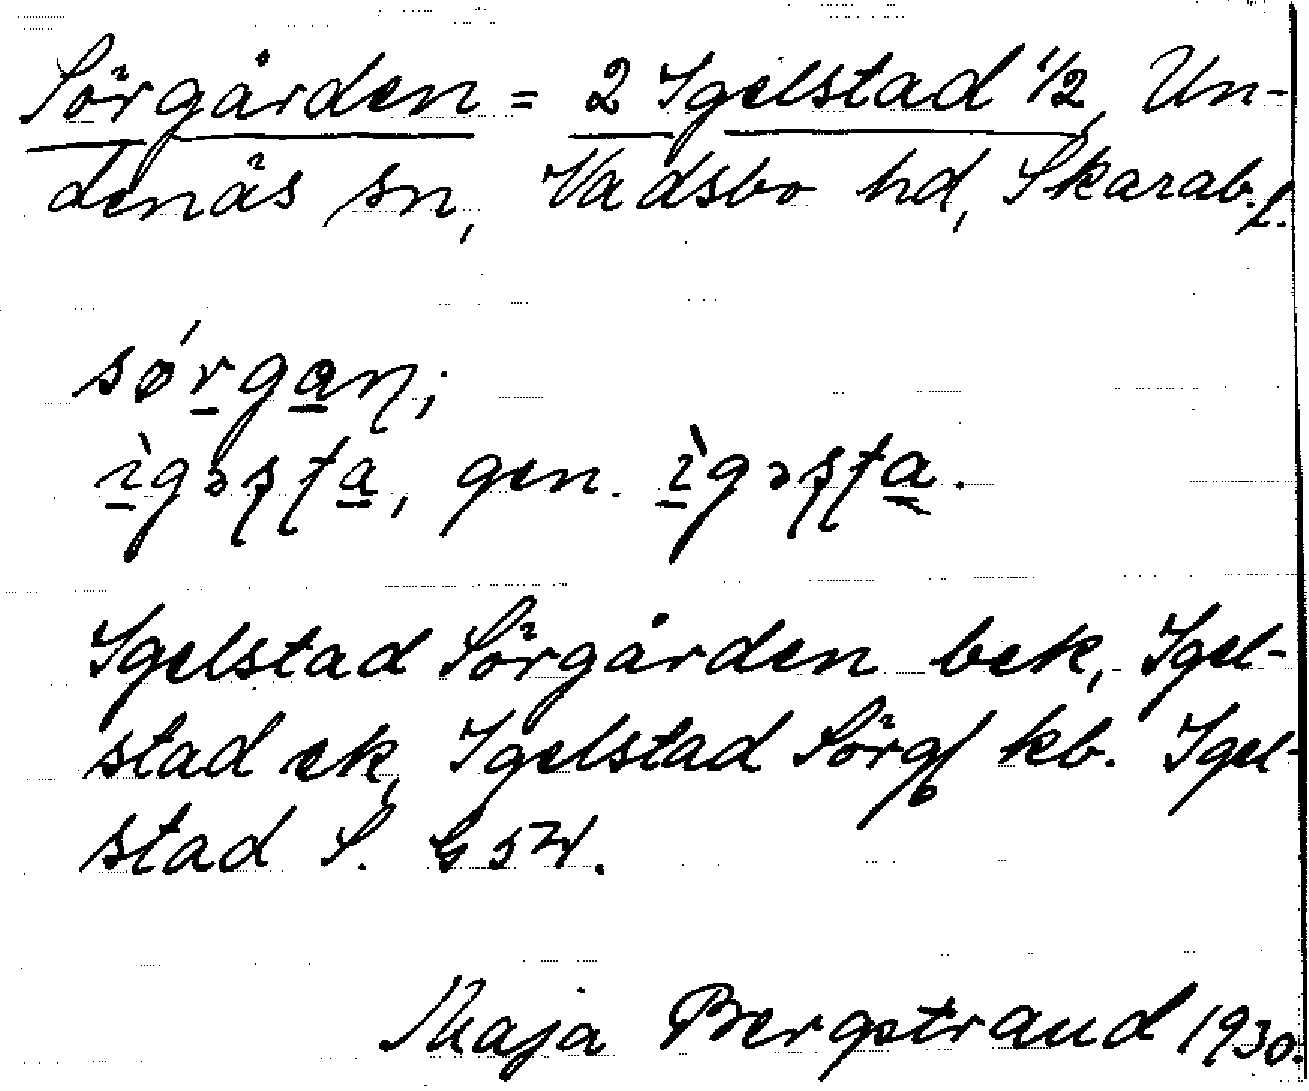 Sörgården = 2 Igelstad 1/2, Un-
denäs sn, Vadsbo hd, Skarab.l.
sǿrgaɳ;
ı̀gəʂʈa, gen. ı̀gəʂʈa.
Igelstad Sörgården bek, Igel-
stad ek, Igelstad Sörg kb. Igel-
stad S.
Maja Bergstrand 1930.